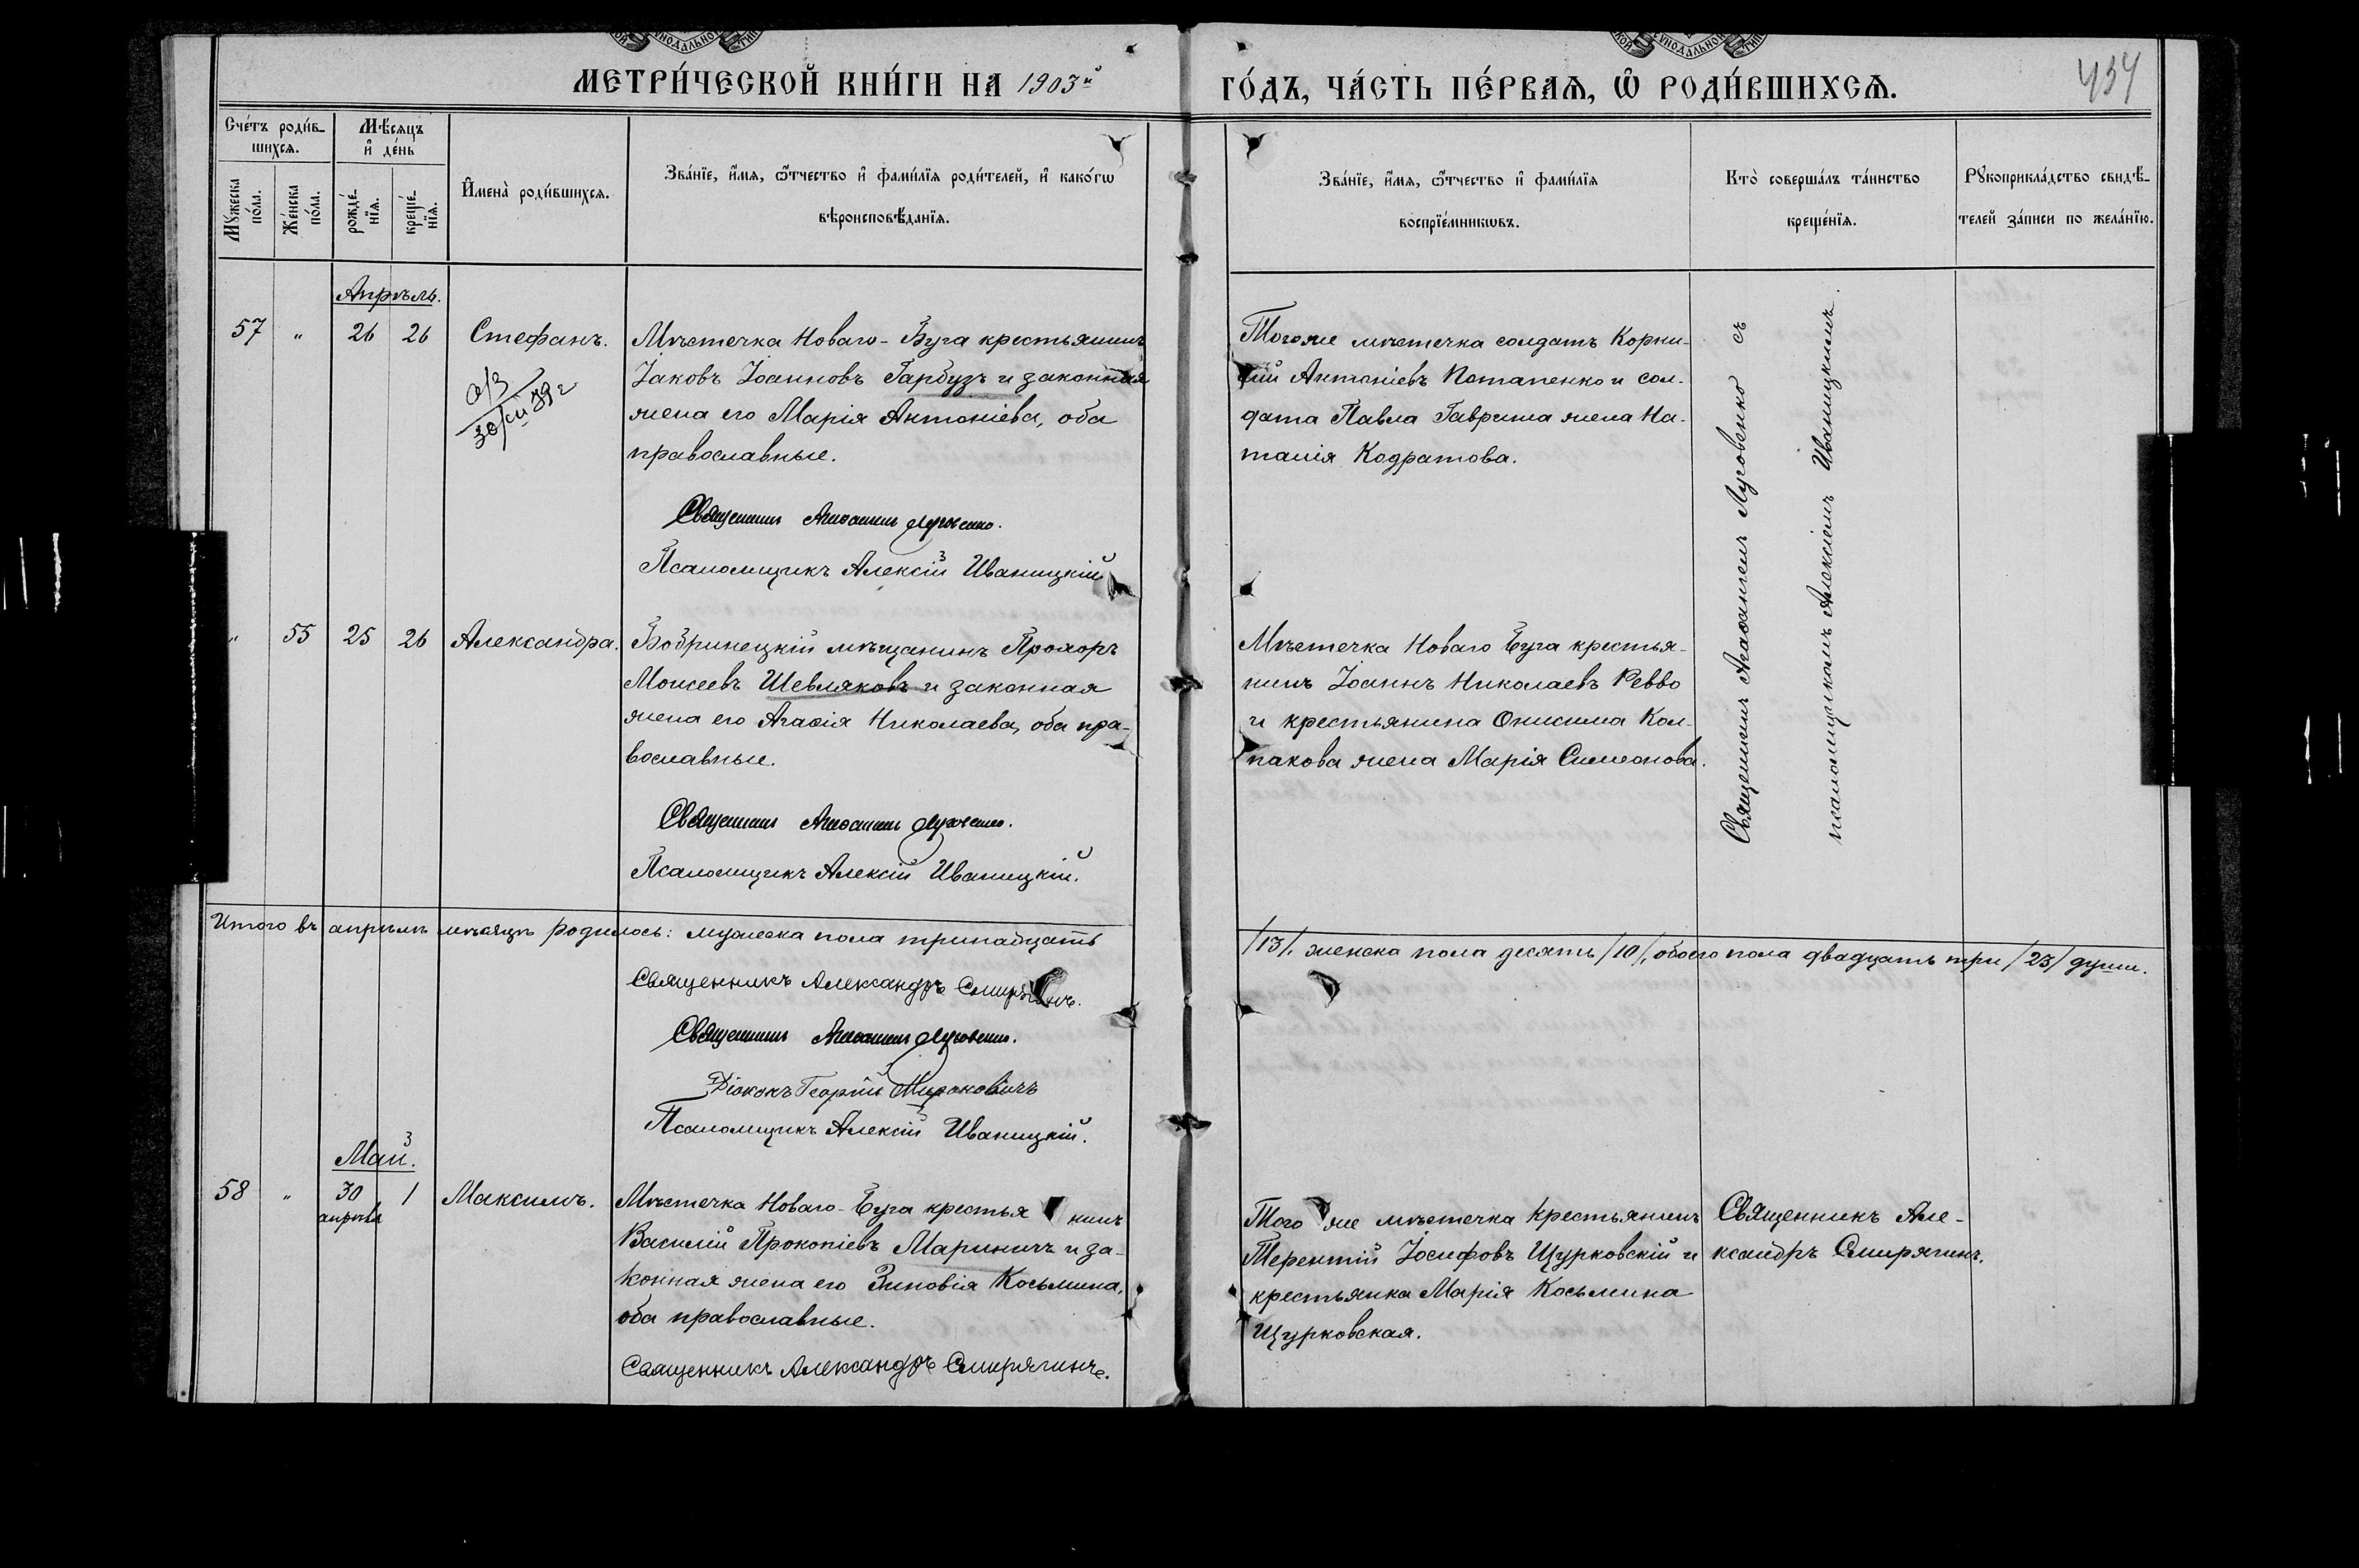 МЕТРИ́ЧЕСКОЙ КНИ́ГИ НА 1903й ГО́ДЪ, ЧА́СТЬ ПЕ́РВАѦ, Ѡ҆ РОДИ́ВШИХСѦ.
434
Сче́тъ роди́в-
шихсѧ.
Мѣ́сѧцъ
и҆ де́нь
Мꙋ́жеска
по́ла.
Же́нска
по́ла.
рожде́-
нїѧ.
креще́-
нїѧ.
И҆мена̀ роди́вшихсѧ.
Зва́нїе, и҆́мѧ, ѻ҆́тчество и҆ фами́лїѧ роди́телей, и҆ како́гѡ
вѣроисповѣ́данїѧ.
Зва́нїе, и҆́мѧ, ѻ҆́тчество и҆ фами́лїѧ
воспрїе́мникѡвъ.
Кто̀ соверша́лъ та́инство
креще́нїѧ.
Рꙋкоприкла́дство свидѣ́-
телей за́писи по жела́нїю.
Апрѣль.
57 " 26 26 Стефанъ.
Мѣстечка Новаго-Буга крестьянинъ
Іаковъ Іоанновъ Гарбузъ и законная
жена его Марія Антоніева, оба
православные.
Священникъ Агаѳангелъ Луговенко.
Псаломщикъ Алексій Иваницкій
Тогоже мѣстечка солдатъ Корни-
лій Антоніевъ Потапенко и сол-
дата Павла Гавриша жена На-
талія Кодратова.
Священникъ Агаѳангелъ Луговенко съ
псаломщикомъ Алексіемъ Иваницкимъ.
" 55 25 26 Александра.
Бобринецкій мѣщанинъ Прохоръ
Моисеевъ Шевляковъ и законная
жена его Агаѳія Николаева, оба пра-
вославные.
Священникъ Агаѳангелъ Луговенко.
Псаломщикъ Алексій Иваницкій.
Мѣстечка Новаго Буга крестья-
нинъ Іоаннъ Николаевъ Ревво
и крестьянина Онисима Кол-
пакова жена Марія Симеонова.
Итого въ апрѣлѣ мѣсяцѣ родилось: мужеска пола тринадцать /13/, женска пола десять /10/, обоего пола двадцать три /23/ души.
Священникъ Александръ Смирягинъ.
Священникъ Агаѳангелъ Луговенко.
Діаконъ Георгій Мироновичъ
Псаломщикъ Алексій Иваницкій.
Май.
58 " 30 1 Максимъ.
апрѣля
Мѣстечка Новаго-Буга крестьянинъ
Василій Прокопіевъ Мариничъ и за-
конная жена его Зиновія Косьмина,
оба православные.
Священникъ Александръ Смирягинъ.
Того же мѣстечка крестьянинъ
Терентій Іосифовъ Щурковскій и
крестьянка Марія Косьмина
Щурковская.
Священникъ Але-
ксандръ Смирягинъ.